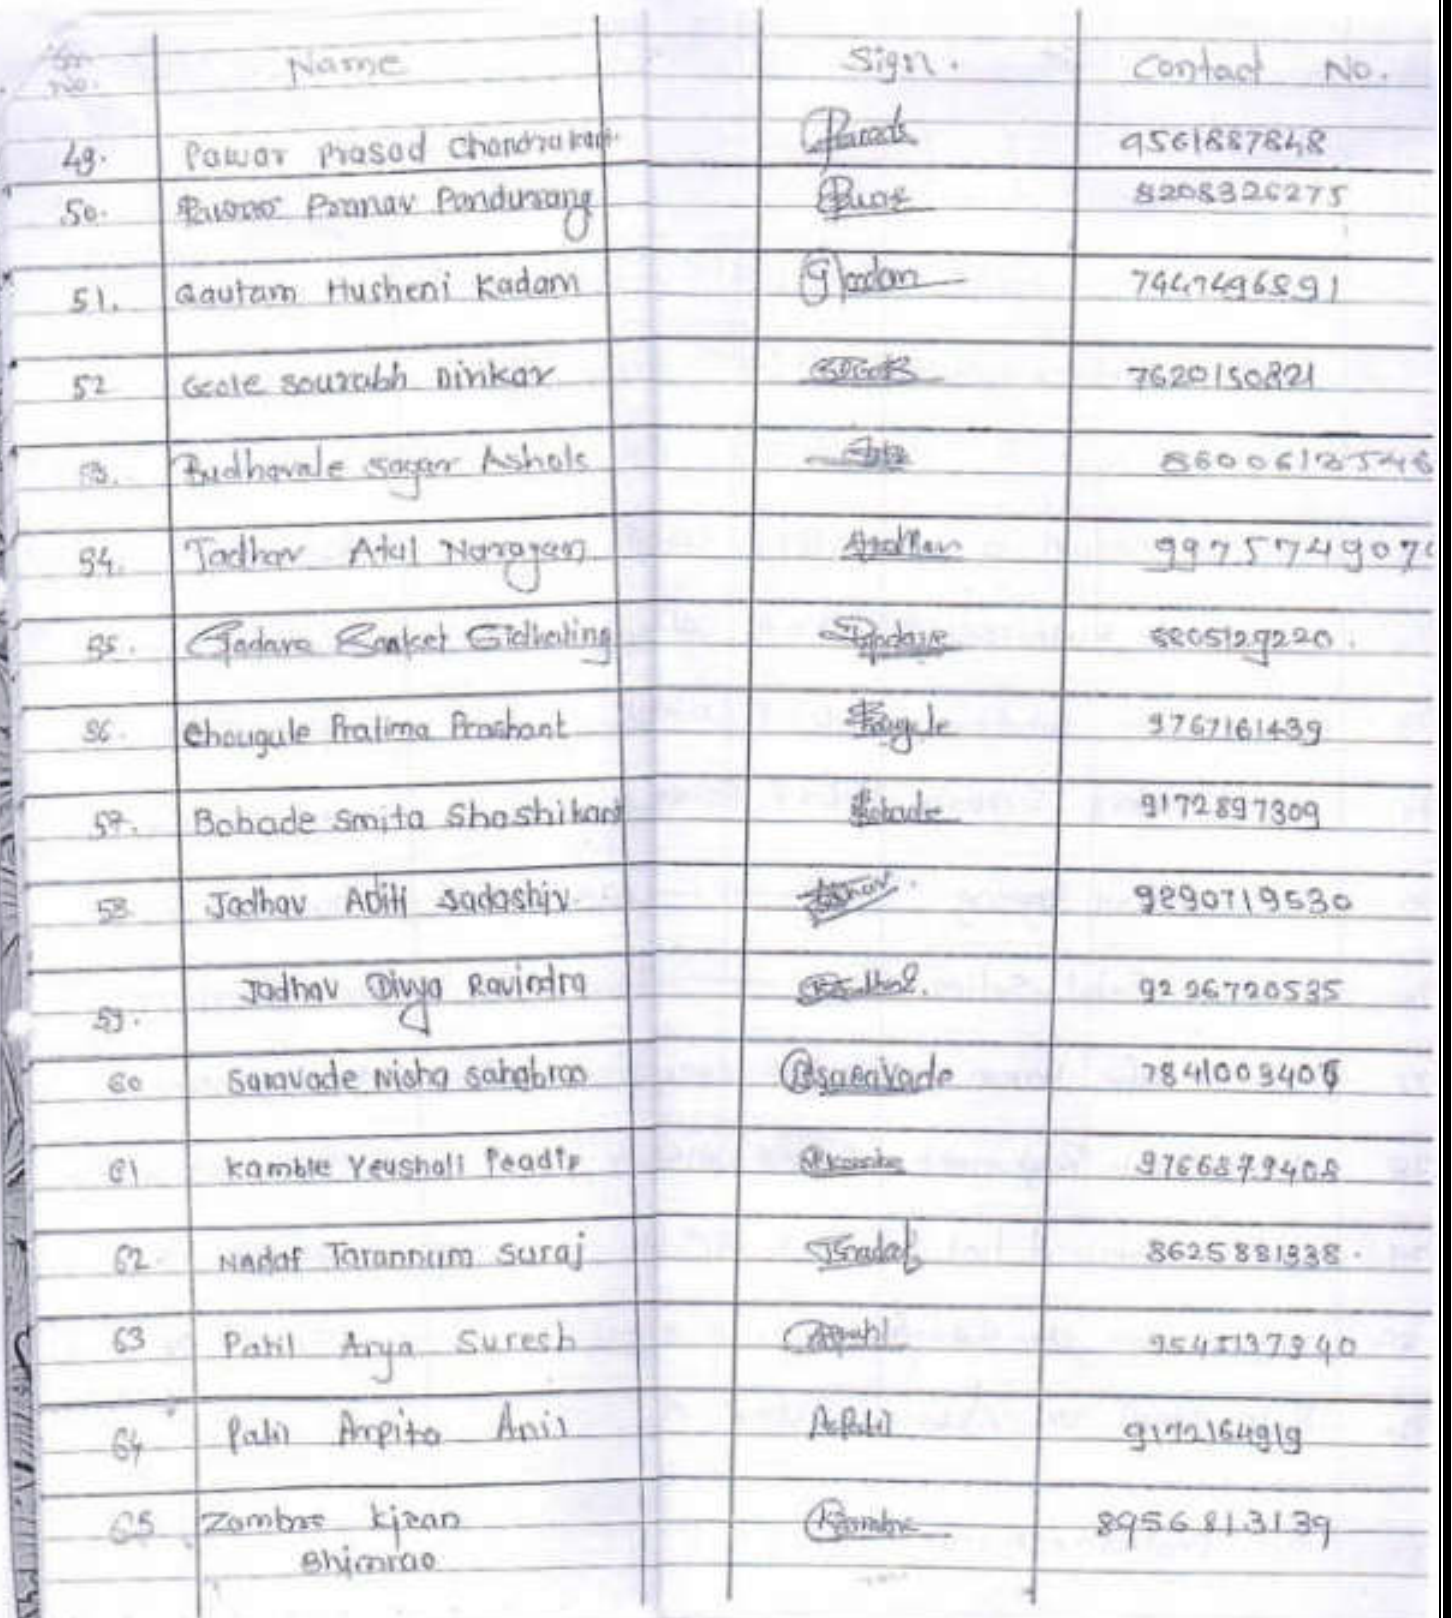 Sr. No. Name Sign. Contact No.
49. Pawar Prasad Chandrakant 9561887848
50. Pawar Pranav Pandurang 8208326275
51. Gautam Husheni Kadam GKadam 7447496891
52 Geole Sourabh Dinkar 7620150821
53. Budhavale Sagar Ashok
54. Jadhav Atul Narayan AJadhav
55. Godave Sanket Gidhaling Godave 8805129220.
56. Chougule Pratima Prashant Chougule 9767161439
57. Bobade Smita Shashikant Bobade 9172897309
58 Jadhav Aditi Sadashiv. 9890719530
59. Jadhav Divya Ravindra 9226720535
60 Saravade Nisha Sahebrao Saravade
61 Kamble Veushali Peadip 9766879408
62. Nadaf Tarannum Suraj TSnadaf 8625881338.
63 Patil Arya Suresh
64 Patil Arpita Anil A.Patil 9172164919
65 Zombre Kiran 8956813139
Bhimrao